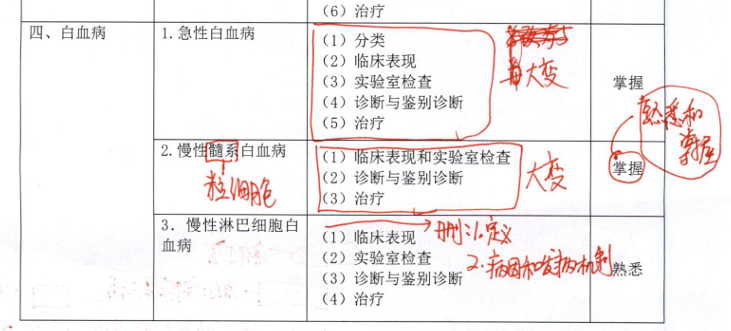 (6) 治疗
四、白血病
1.急性白血病
(1) 分类
(2) 临床表现
(3) 实验室检查
(4) 诊断与鉴别诊断
(5) 治疗
大变
掌握
熟悉和
掌握
2.慢性髓系白血病
粒细胞
(1) 临床表现和实验室检查
(2) 诊断与鉴别诊断
(3) 治疗
大变
掌握
3. 慢性淋巴细胞白
血病
(1) 临床表现
(2) 实验室检查
(3) 诊断与鉴别诊断
(4) 治疗
删1.定义
2.病因和发病机制
熟悉